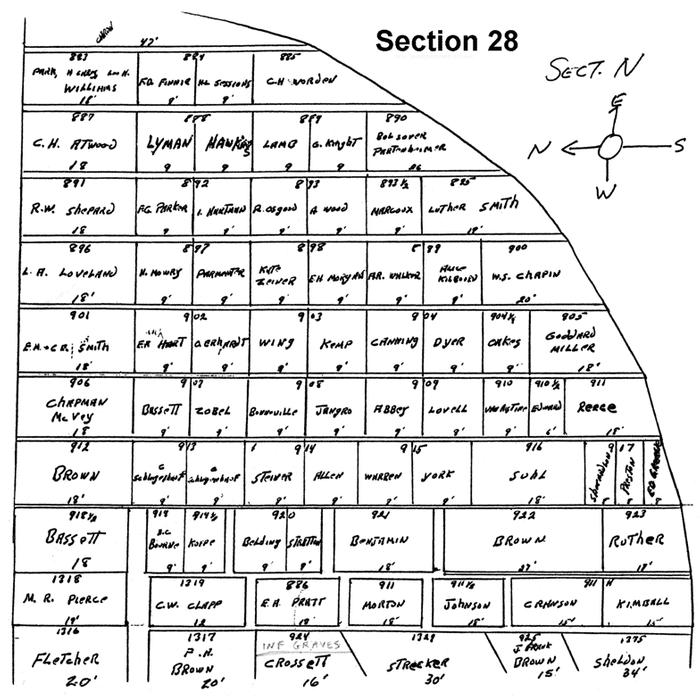 Section 28
SECT. N
E
N S
W
42'
883 884 885
PARK, WILLIAMS F.D. FINNIE H.L. SESSIONS C.H. WORDEN
18' 9' 9'
887 888 889 890
C.H. ATWOOD LYMAN HAWKINS LAMB G. KNIGHT BOLSOVER PARTENHEIMER
18 9 9 9 9 26
891 892 893 893 1/2 895
R.W. SHEPARD F.G. PARKER L. HARTMAN R. OSGOOD A WOOD MARCOUX LUTHER SMITH
18 9' 9' 9' 9' 9' 18'
896 897 898 899 900
L.A. LOVELAND H. MOWRY PARMENTER KATE ZEINER E.H. MORGAN A.R. WALKER ALICE KILBOURN W.S. CHAPIN
18' 9' 9' 9' 9' 9' 9' 20'
901 902 903 904 904 1/2 905
E.H. & C.B. SMITH E.R. HART O. GERHARDT WING KEMP CANNING DYER OAKES GODDARD MILLER
18' 9' 9' 9' 9' 9' 9' 9' 18'
906 907 908 909 910 910 1/2 911
CHAPMAN McVEY BASSETT ZOBEL BONNEVILLE JANGRO ABBEY LOVELL EDWARD REECE
18 9' 9' 9' 9' 9' 9' 9' 6' 18'
912 913 914 915 916 917
BROWN STEINER ALLEN WARREN YORK SUHL PRESTON
18' 9' 9' 9' 9' 9' 9' 18' 8' 8' 8'
918 1/2 919 919 1/2 920 921 922 923
BASSETT BOURNE KORPE BELDING STRATTON BENJAMIN BROWN RUTHER
18 9' 9' 9' 9' 18' 27' 18'
1318 1319 886 911 911 1/2 911
M.R. PIERCE C.W. CLAPP E.A. PRATT MORTON JOHNSON CRANSON KIMBALL
19' 12 18' 18' 15' 15' 15'
1316 1317 924 1321 925 1375
INF GRAVES
FLETCHER P.A. BROWN CROSSETT STRECKER J FRANK BROWN SHELDON
20' 20' 16' 30' 15' 34'